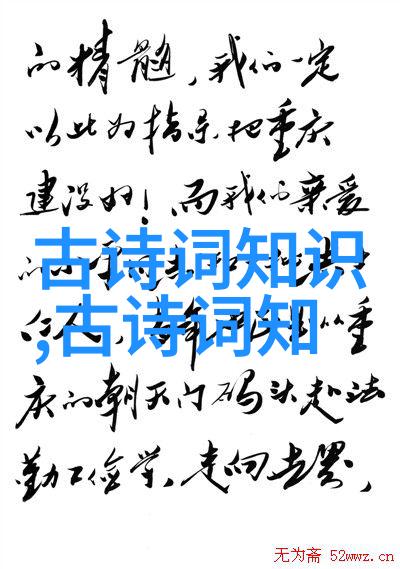 的精髓，我们一定
以此为指导把重庆
建设好！而我们亲爱
的小平同志
古诗词知识
,古诗词知
当年 从重
庆的朝天门码头赴法
勤工俭学，走向世界，
无为斋 52wwz.cn